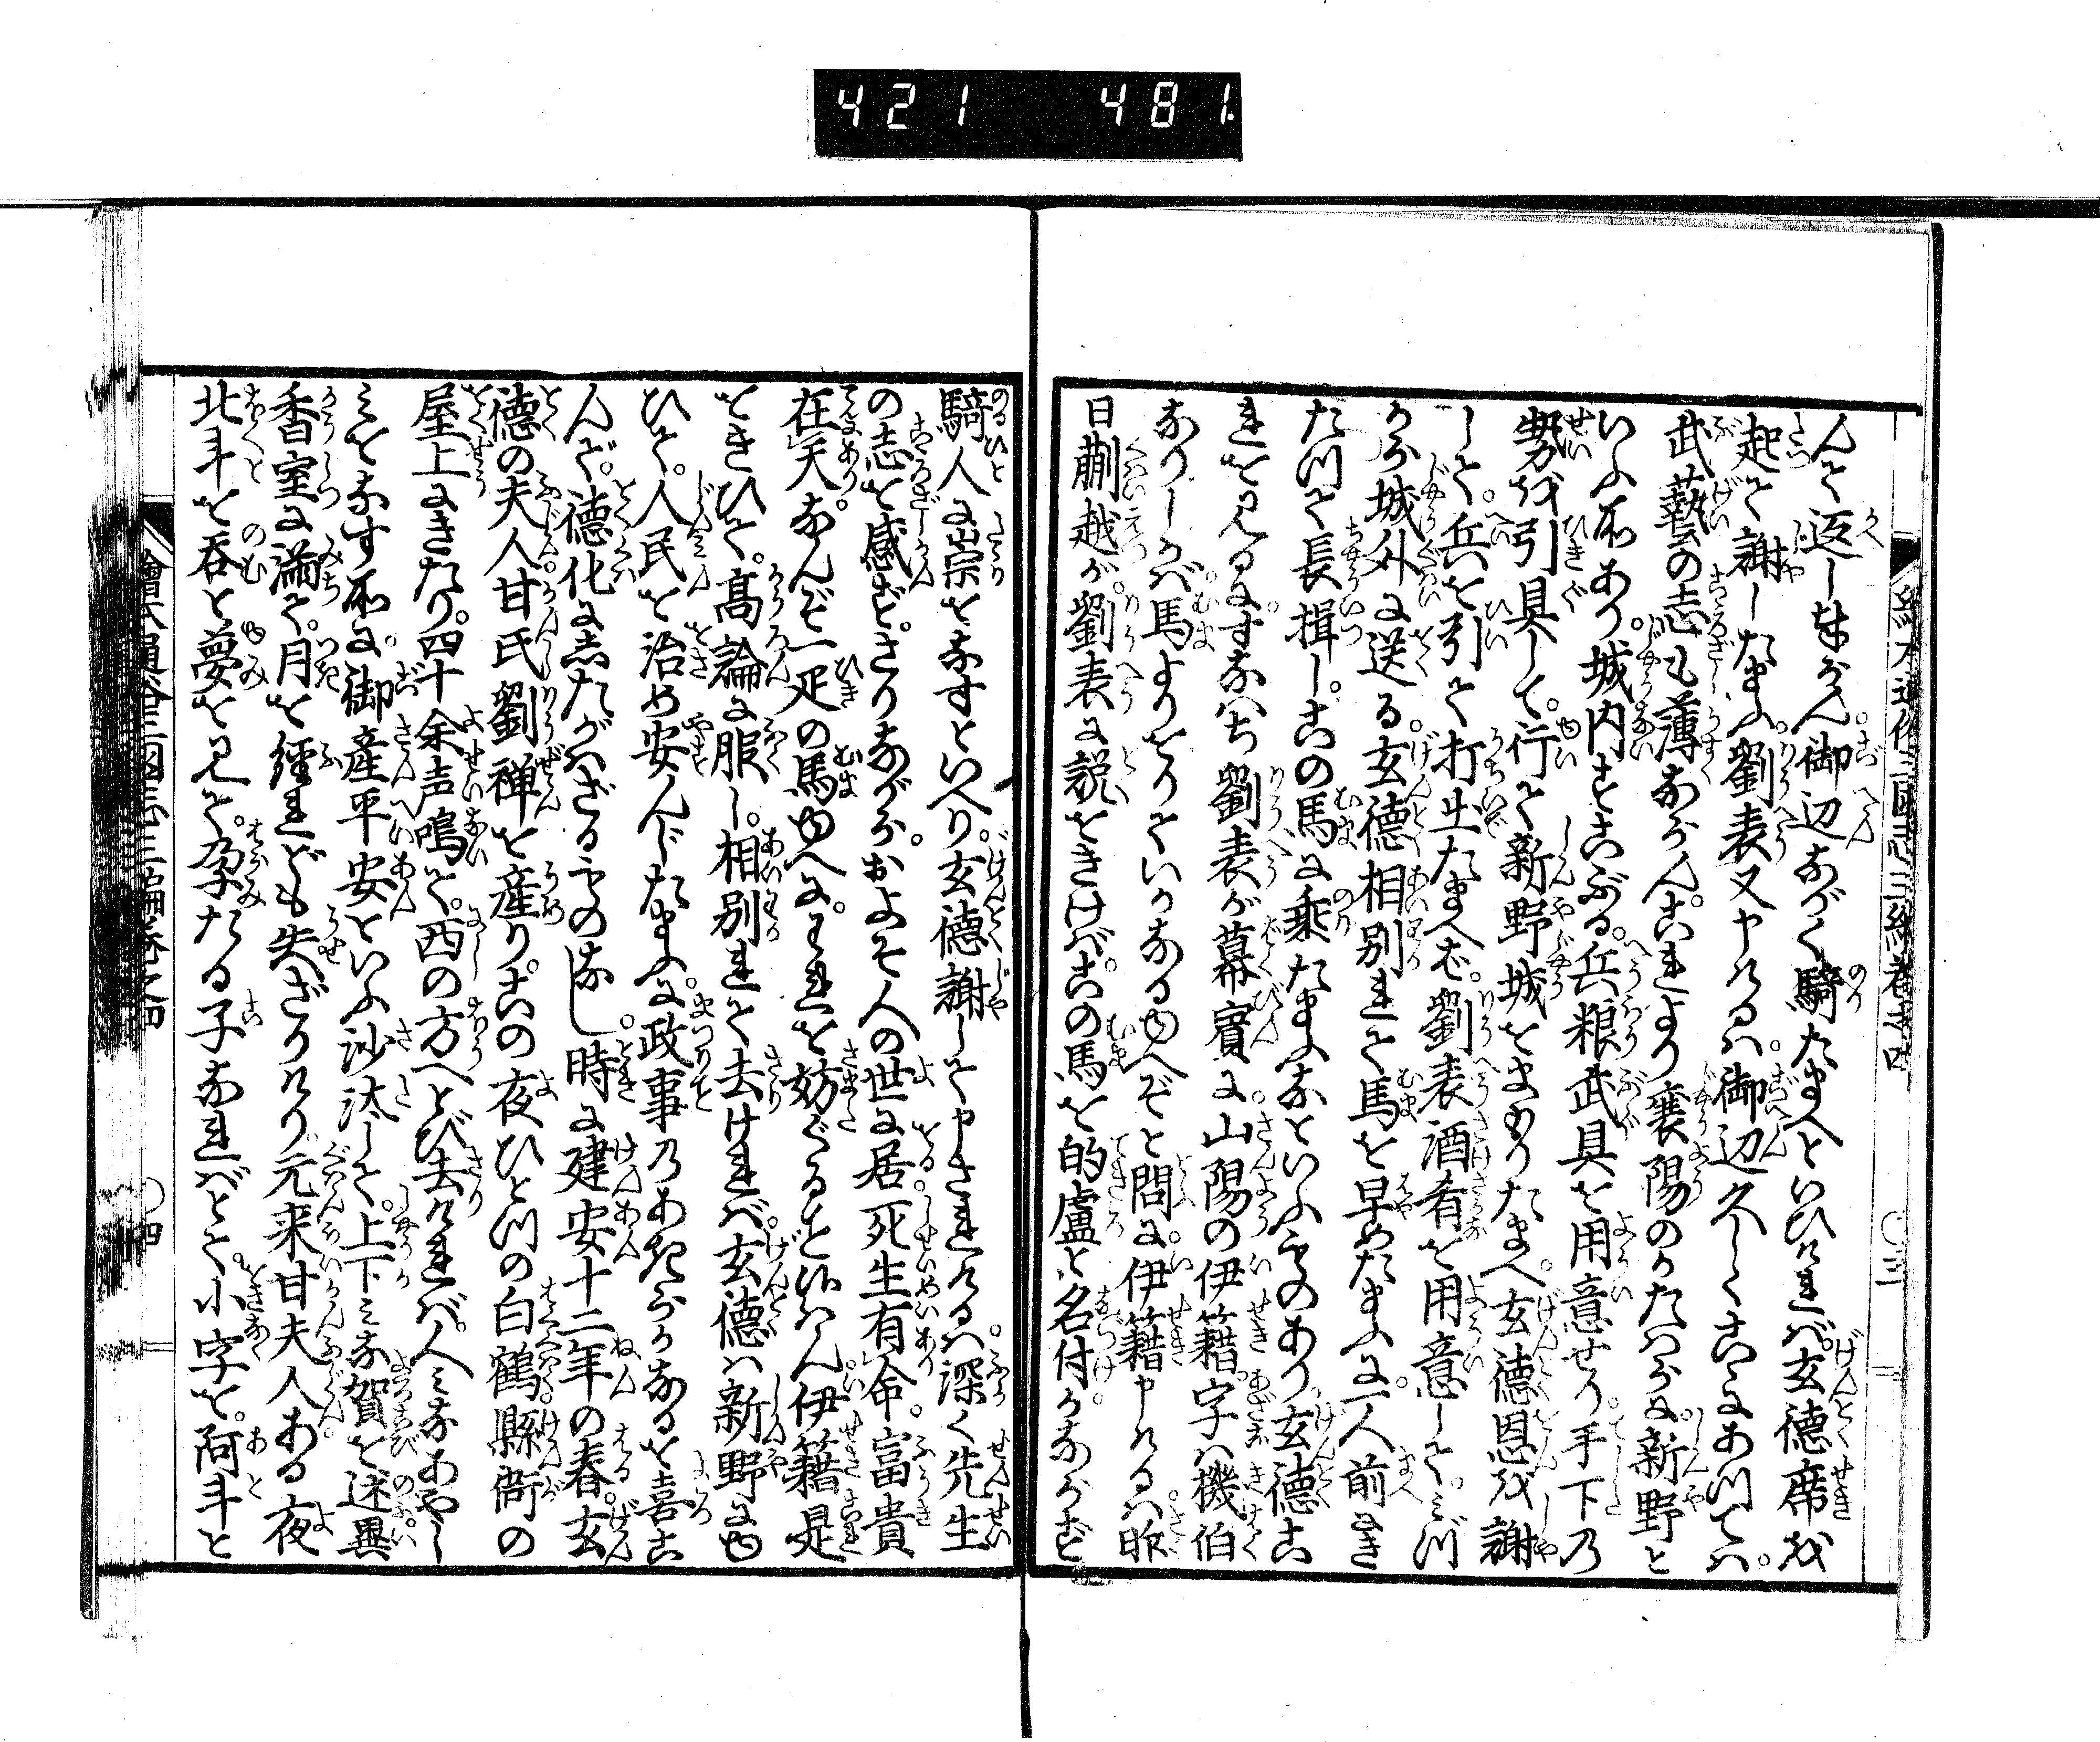 421 481
繪本通俗三國志三編巻之四 〇三
んで返し奉らん。御辺ながく騎たまへといひければ。玄徳席を
起て謝したまふ。劉表又申けるハ。御辺久しくこゝにあつてハ。
武藝の志も薄ならん。これより襄陽のかたハらに。新野と
いふ所あり。城内すこぶる。兵粮武具を用意せり。手下の
勢を引具して。行て新野城をまもりたまへ。玄徳恩を謝
して。兵を引て打出たまへば。劉表酒肴を用意して。みづ
から城外に送る。玄徳相別れて馬を早めたまふに。一人前にき
たつて長揖し。この馬に乗たまふなといふものあり。玄徳こ
れを見るに。すなハち劉表が幕賓に。山陽の伊籍。字ハ機伯
なりしかば。馬よりをりていかなるゆへぞと問に。伊籍申けるハ。昨
日蒯越が。劉表に説をきけば。この馬を的盧と名付。かならず
騎人に祟をなすといへり。玄徳謝して申されけるハ。深く先生
の志を感ず。さりながら。およそ人の世に居。死生有命。富貴
在天。なんぞ一疋の馬ゆへに。われを妨ぐることあらん。伊籍是
をきひて。高論に服し。相別れて去ければ。玄徳ハ新野にゆ
ひて。人民を治め安んじたまふに。政事のあきらかなるを喜こ
んで。徳化にしたがハざるものなし。時に建安十二年の春。玄
徳の夫人甘氏劉禅を産り。この夜ひとつの白鶴。縣衙の
屋上にきたり。四十余声鳴て。西の方へとび去ければ。人みなあやし
みをなす所に。御産平安といふ沙汰して。上下みな賀を述。異
香室に満て。月を經れども失ざりけり。元来甘夫人ある夜
北斗を呑と夢を見て。孕たる子なればとて。小字を。阿斗と
繪本通俗三國志三編巻之四 〇四